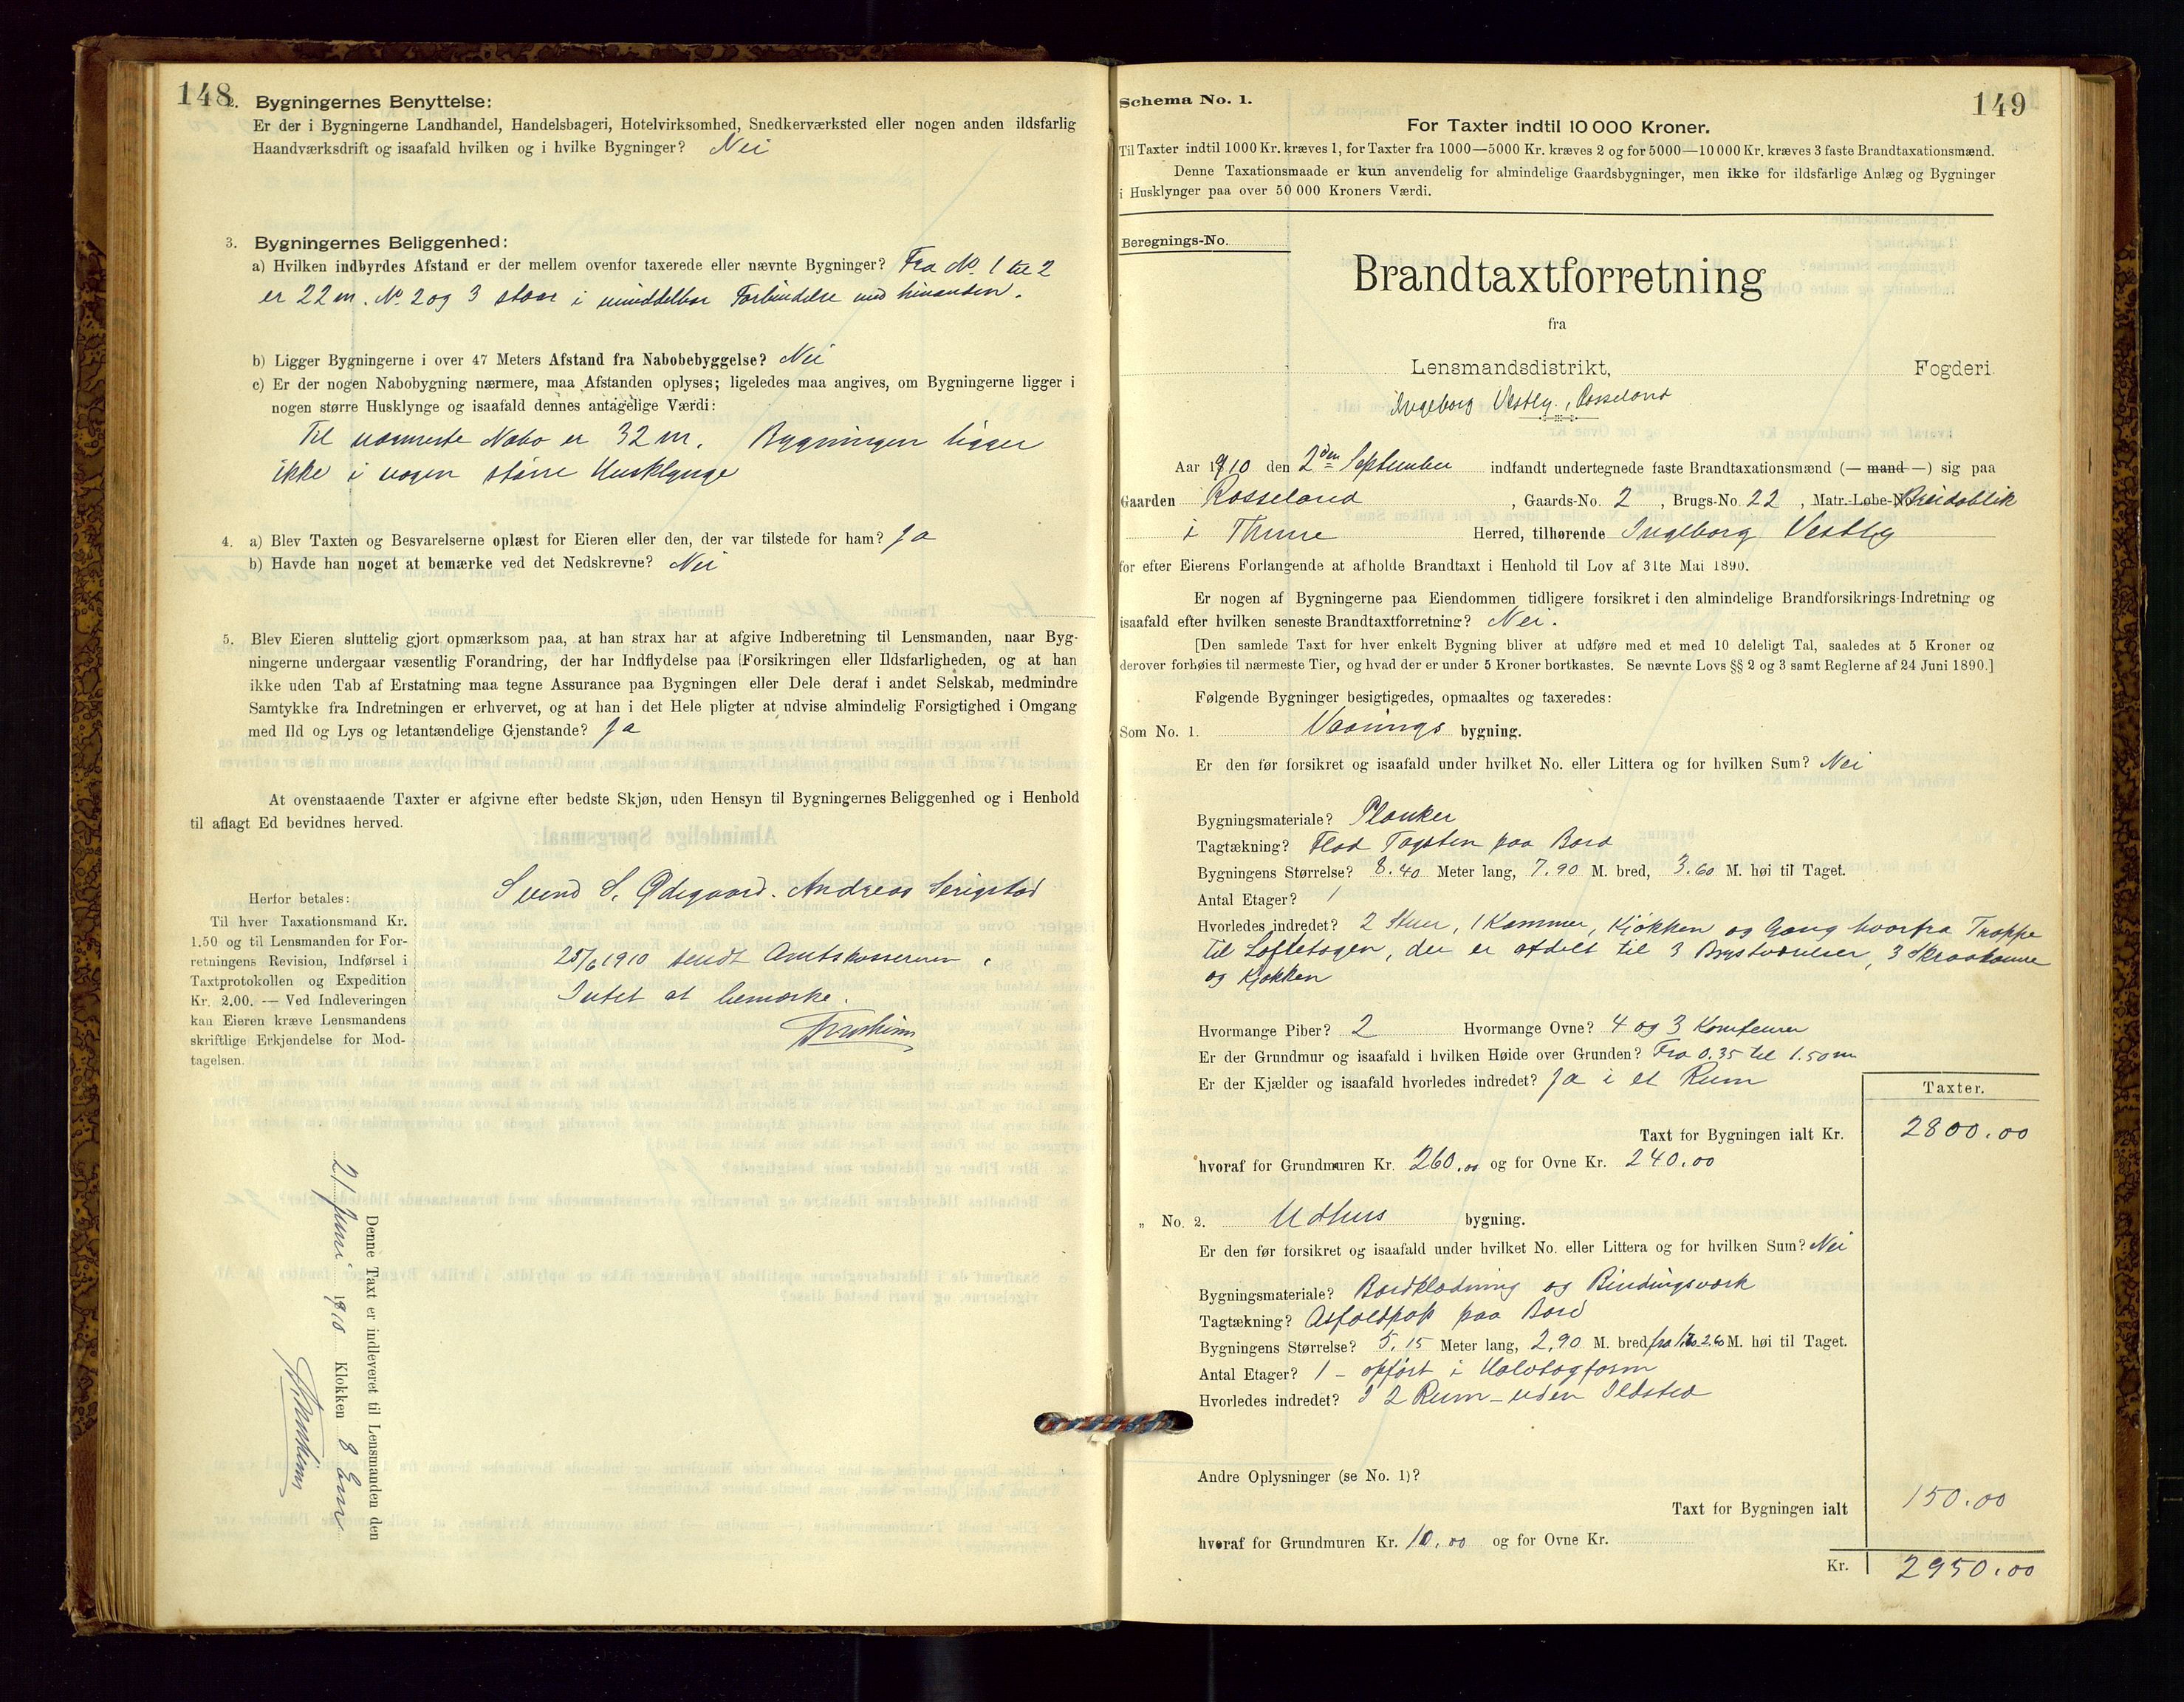 148
2. Bygningernes Benyttelse:
Er der i Bygningerne Landhandel, Handelsbageri, Hotelvirksomhed, Snedkerværksted eller nogen anden ildsfarlig
Haandværksdrift og isaafald hvilken og i hvilke Bygninger? Nei
3. Bygningernes Beliggenhed:
a) Hvilken indbyrdes Afstand er der mellem ovenfor taxerede eller nævnte Bygninger? Fra No. 1 til 2
er 22 m. No. 2 og 3 staar i umiddelbar Forbindelse med hinanden.
b) Ligger Bygningerne i over 47 Meters Afstand fra Nabobebyggelse? Nei
c) Er der nogen Nabobygning nærmere, maa Afstanden oplyses; ligeledes maa angives, om Bygningerne ligger i
nogen større Husklynge og isaafald dennes antagelige Værdi:
Til nærmeste Nabo er 32 m. Bygningen ligger
ikke i nogen større Husklynge
4. a) Blev Taxten og Besvarelserne oplæst for Eieren eller den, der var tilstede for ham? Ja
b) Havde han noget at bemærke ved det Nedskrevne? Nei
5. Blev Eieren sluttelig gjort opmærksom paa, at han strax har at afgive Indberetning til Lensmanden, naar Byg-
ningerne undergaar væsentlig Forandring, der har Indflydelse paa Forsikringen eller Ildsfarligheden, og at han
ikke uden Tab af Erstatning maa tegne Assurance paa Bygningen eller Dele deraf i andet Selskab, medmindre
Samtykke fra Indretningen er erhvervet, og at han i det Hele pligter at udvise almindelig Forsigtighed i Omgang
med Ild og Lys og letantændelige Gjenstande? Ja
At ovenstaaende Taxter er afgivne efter bedste Skjøn, uden Hensyn til Bygningernes Beliggenhed og i Henhold
til aflagt Ed bevidnes herved.
Svend S. Ødegaard. Andreas Serigstad
Herfor betales:
Til hver Taxationsmand Kr.
1.50 og til Lensmanden for For-
retningens Revision, Indførsel i
Taxtprotokollen og Expedition
Kr. 2.00. — Ved Indleveringen
kan Eieren kræve Lensmandens
skriftlige Erkjendelse for Mod-
tagelsen.
25/6 1910 sendt Amtskassereren.
Intet at bemærke.
Denne Taxt er indleveret til Lensmanden den
21 Juni 1910 Klokken 8 Em
149
Schema No. 1.
For Taxter indtil 10 000 Kroner.
Til Taxter indtil 1000 Kr. kræves 1, for Taxter fra 1000—5000 Kr. kræves 2 og for 5000—10 000 Kr. kræves 3 faste Brandtaxationsmænd.
Denne Taxationsmaade er kun anvendelig for almindelige Gaardsbygninger, men ikke for ildsfarlige Anlæg og Bygninger
i Husklynger paa over 50 000 Kroners Værdi.
Beregnings-No.
Brandtaxtforretning
fra
Lensmandsdistrikt, Fogderi
Ingeborg Vestly, Rosseland
Aar 1910 den 2den September indfandt undertegnede faste Brandtaxationsmænd (— mand —) sig paa
Gaarden Rosseland, Gaards-No. 2, Brugs-No. 22, Matr.-Løbe-No. Breidablik
i Thime Herred, tilhørende Ingeborg Vestly
for efter Eierens Forlangende at afholde Brandtaxt i Henhold til Lov af 31te Mai 1890.
Er nogen af Bygningerne paa Eiendommen tidligere forsikret i den almindelige Brandforsikrings-Indretning og
isaafald efter hvilken seneste Brandtaxtforretning? Nei.
[Den samlede Taxt for hver enkelt Bygning bliver at udføre med et med 10 deleligt Tal, saaledes at 5 Kroner og
derover forhøies til nærmeste Tier, og hvad der er under 5 Kroner bortkastes. Se nævnte Lovs §§ 2 og 3 samt Reglerne af 24 Juni 1890.]
Følgende Bygninger besigtigedes, opmaaltes og taxeredes:
Som No. 1. Vaanings bygning.
Er den før forsikret og isaafald under hvilket No. eller Littera og for hvilken Sum? Nei
Bygningsmateriale? Planker
Tagtækning? Flad Tagsten paa Bord
Bygningens Størrelse? 8.40 Meter lang, 7.90 M. bred, 3.60 M. høi til Taget.
Antal Etager? 1
Hvorledes indredet? 2 Stuer, 1 Kammer, Kjøkken og Gang hvorfra Trappe
til Loftetagen, der er afdelt til 3 Brystværelser, 3 Skraakamre
og Kjøkken
Hvormange Piber? 2 Hvormange Ovne? 4 og 3 Komfeurer
Er der Grundmur og isaafald i hvilken Høide over Grunden? Fra 0.35 til 1.50 m
Er der Kjælder og isaafald hvorledes indredet? Ja i et Rum
Taxter.
Taxt for Bygningen ialt Kr. 2800.00
hvoraf for Grundmuren Kr. 260.00 og for Ovne Kr. 240.00
„ No. 2. Udhus bygning.
Er den før forsikret og isaafald under hvilket No. eller Littera og for hvilken Sum? Nei
Bygningsmateriale? Bordklædning og Bindingsværk
Tagtækning? Asfaltpap paa Bord
Bygningens Størrelse? 5.15 Meter lang, 2.90 M. bred, fra 2.60 M. høi til Taget.
Antal Etager? 1 - opført i Halvtagform
Hvorledes indredet? I 2 Rum - uden Ildsted
Andre Oplysninger (se No. 1)?
Taxt for Bygningen ialt 150.00
hvoraf for Grundmuren Kr. 10.00 og for Ovne Kr.
Kr. 2950.00